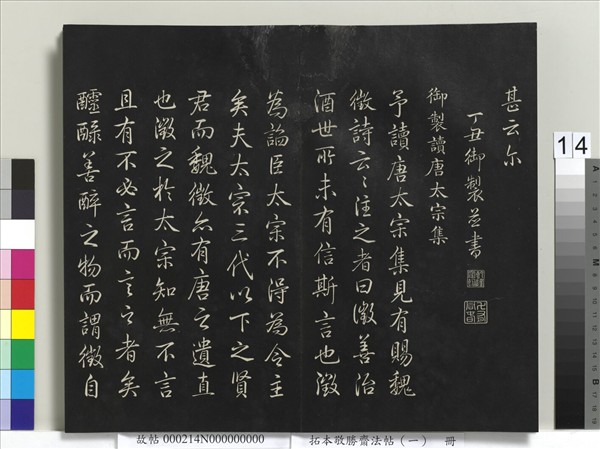 甚云尔
丁丑御製并書
御製讀唐太宗集
予讀唐太宗集見有賜魏
徵詩云云注之者曰徵善治
酒世所未有信斯言也徵
為諂臣太宗不得為令主
矣夫太宗三代以下之賢
君而魏徵亦有唐之遺直
也徵之於太宗知無不言
且有不必言而言之者矣
醽醁善醉之物而謂徵自
14
故帖 000214N000000000 拓本敬勝齋法帖（一） 冊